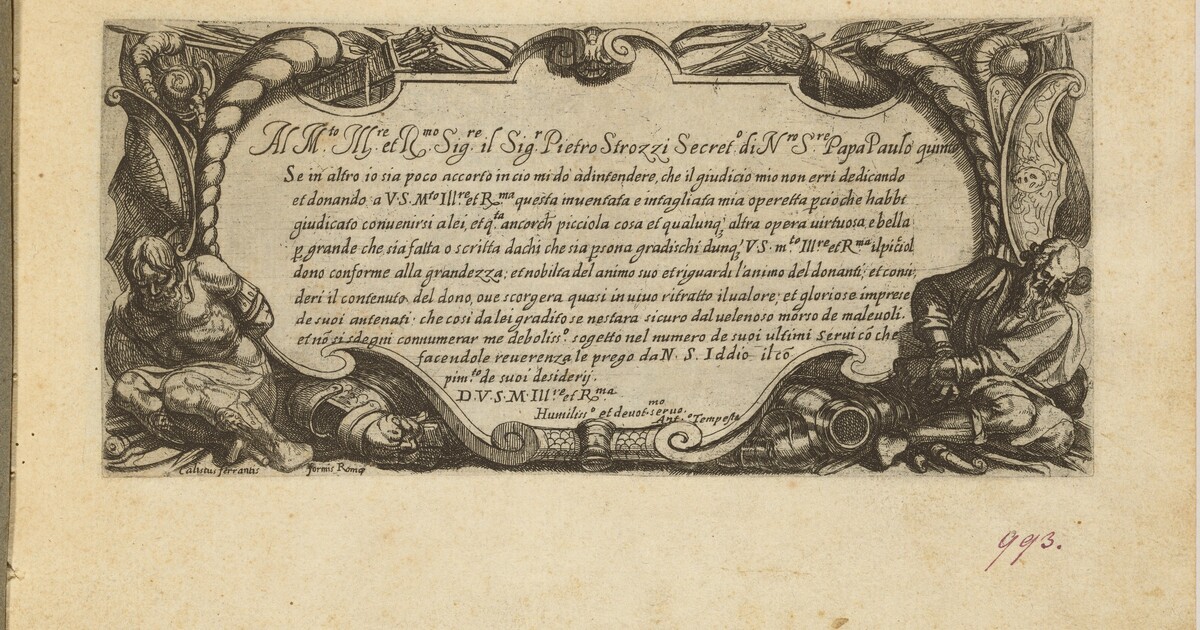 Al M.to Ill.re et R.mo Sig.re il Sig.r Pietro Strozzi Secret.o di N.ro S.re Papa Paulo quinto
Se in altro io sia poco accorto in cio mi do adintendere, che il giudicio mio non erri dedicando
et donando a V·S·M.to Ill.re et R.ma questa inuentata e intagliata mia operetta p̲cioche habbi
giudicato conuenirsi a lei, et q.ta ancorch̃ picciola cosa et qualunq; altra opera uirtuosa e bella
p̲ grande che sia fatta o scritta da chi che sia p̲sona gradischi dunq; V·S·m.to Ill.re et R.ma il piciol
dono conforme alla grandezza, et nobilta del animo suo et riguardi l'animo del donanti; et consi,
deri il contenuto del dono, oue scorgera quasi in uiuo ritratto il ualore, et gloriose imprese
de suoi antenati· che cosi da lei gradito se nestara sicuro dal uelenoso morso de maleuoli.
et nõ si sdegni connumerar me deboliss.o sogetto nel numero de suoi ultimi serui cõ che
facendole reuerenza le prego da N. S. Iddio il cõ
pim.to de suoi desiderij.
D.V.S.M.Ill.re et R.ma
Humiliss.o et deuot.mo seruo.
Ant.o Tempesta
Calistus ferrantis formis Romę
993.